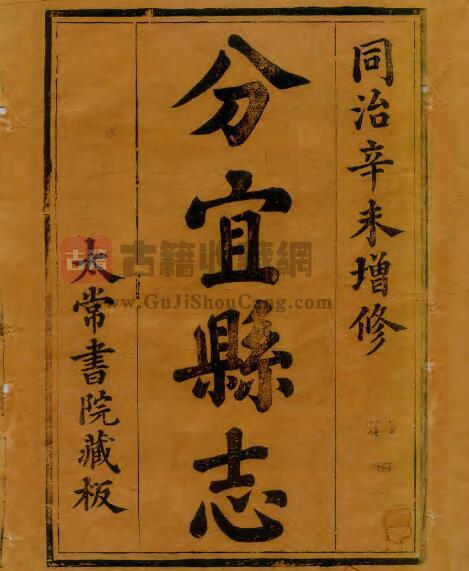 同治辛未增修
分宜縣志
太常書院藏板
古籍收藏網
www.GuJiShouCang.com